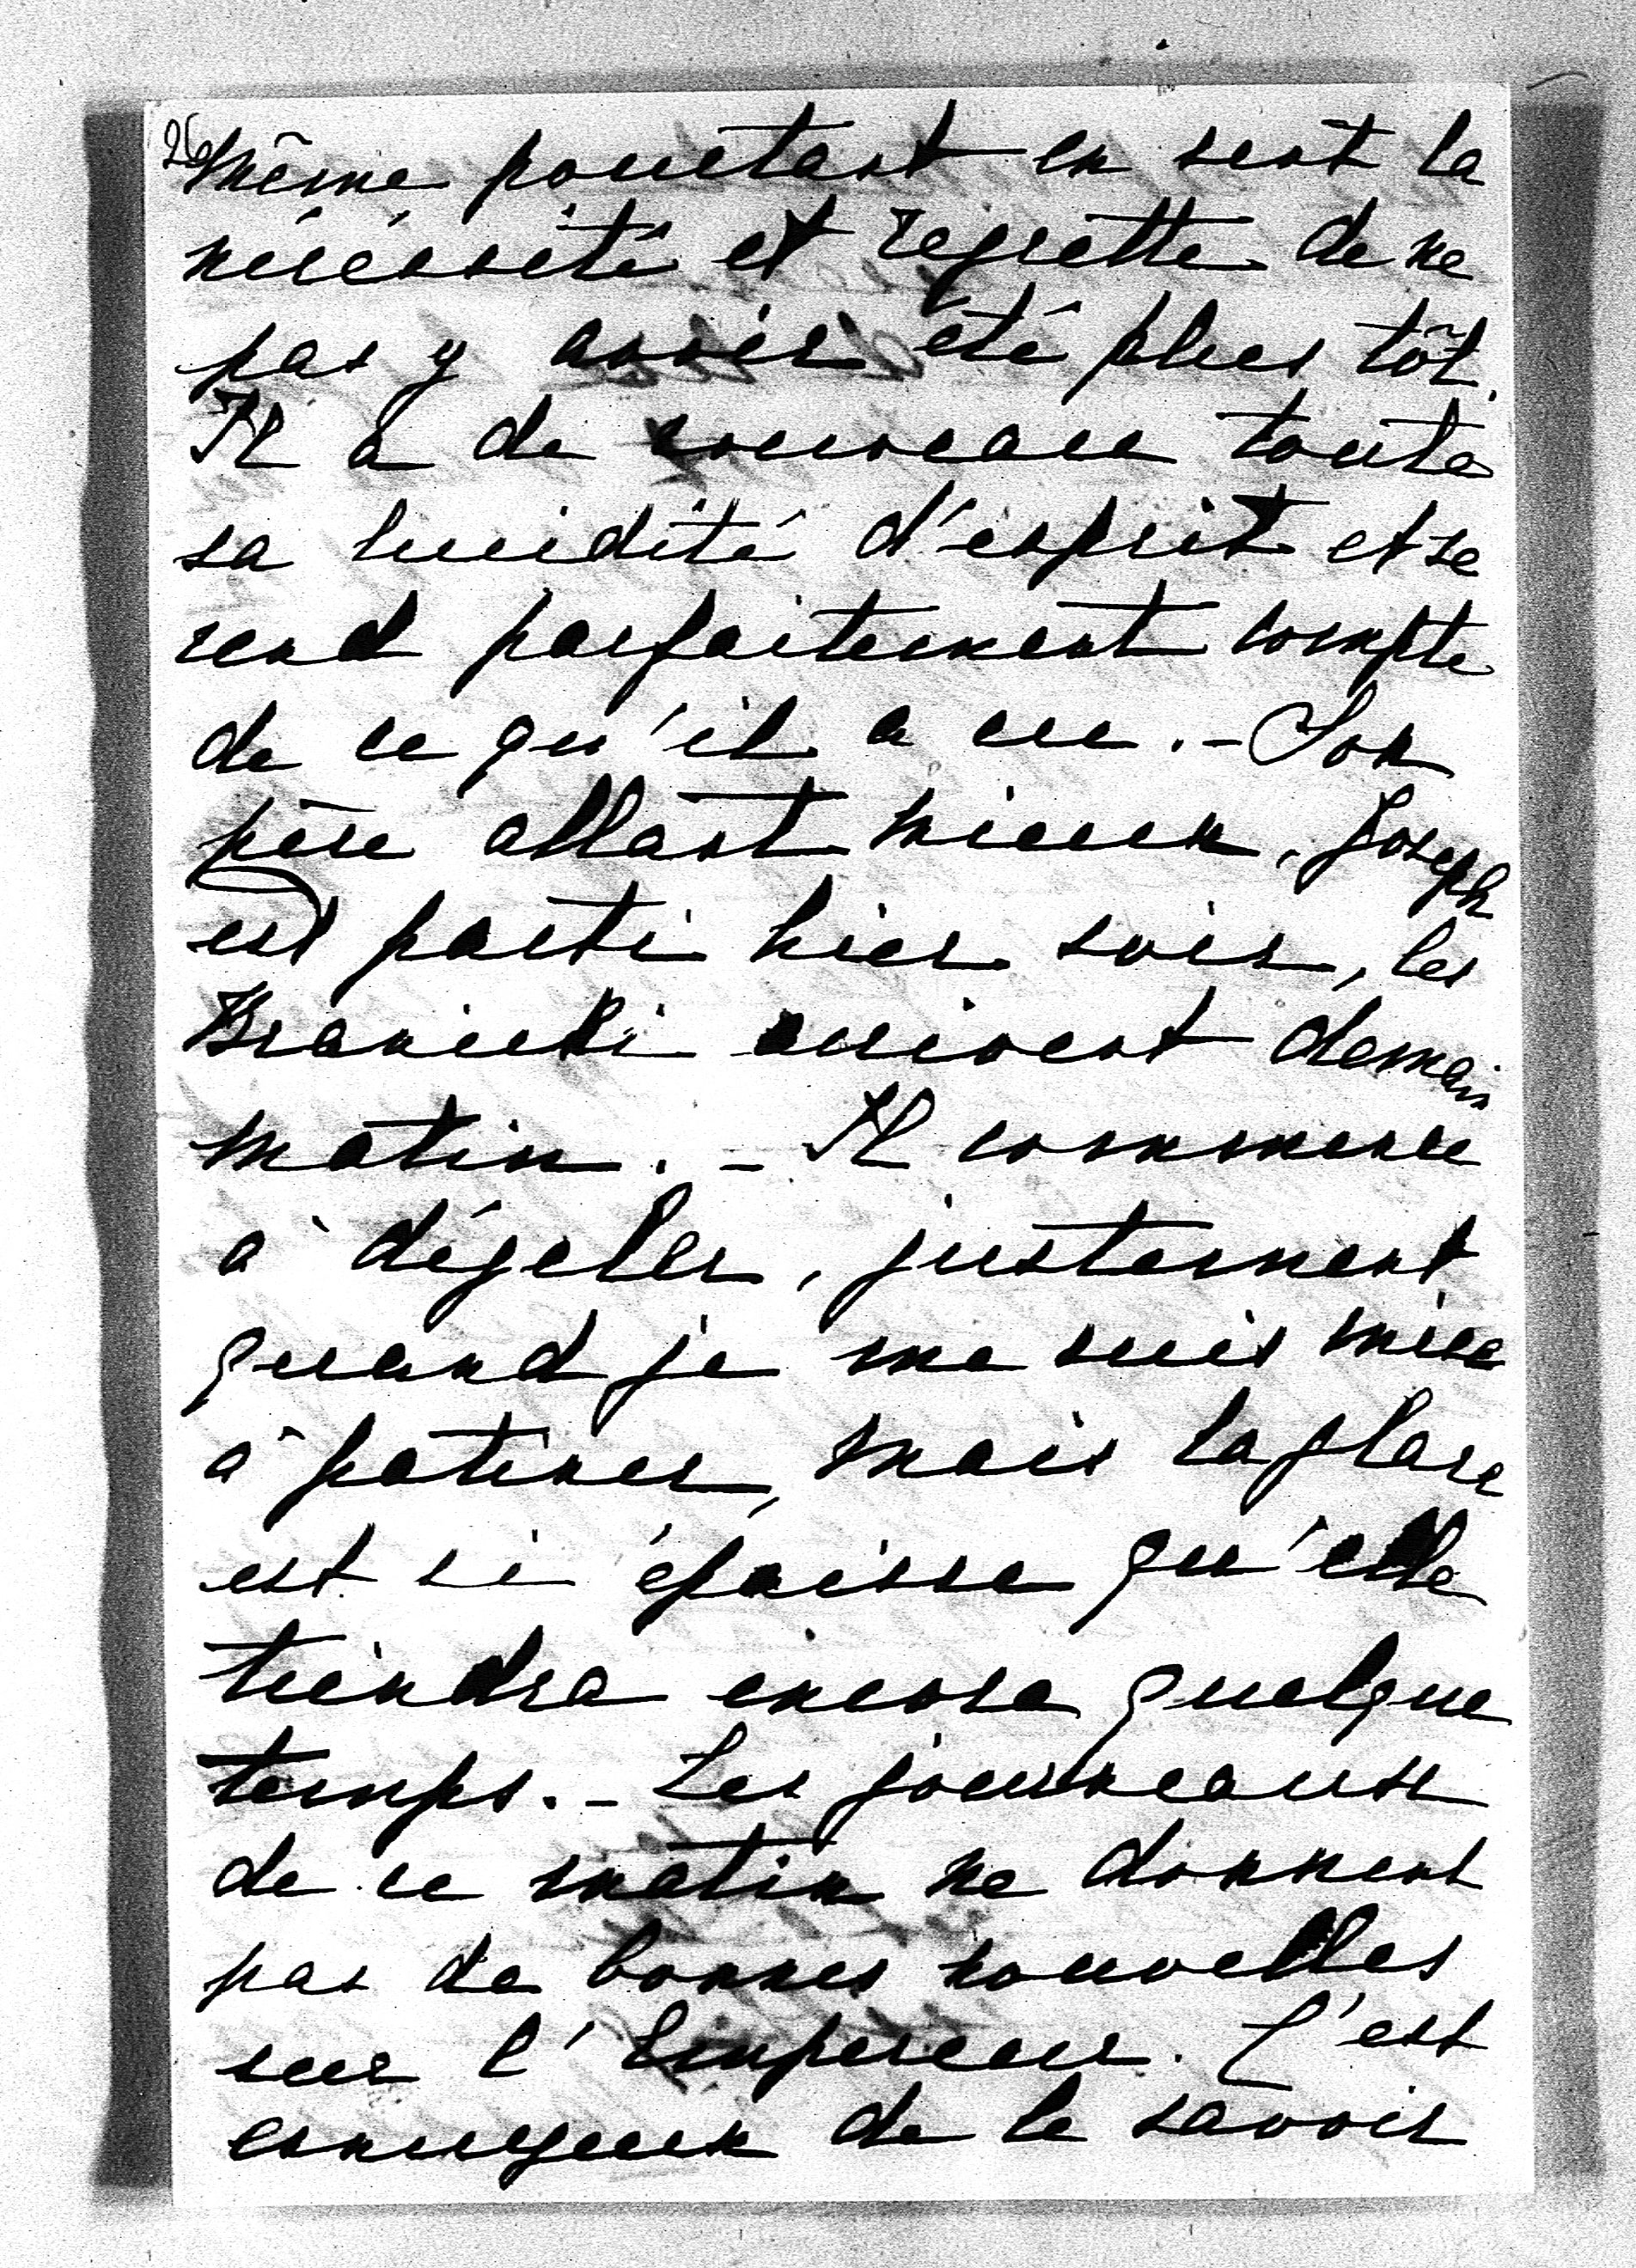 26
même pourtant en sent la
nécéssité et regrette de ne
pas y avoir été plus tôt.
Il a de nouveau toute
sa lucidité d'esprit et se
rend parfaitement compte
de ce qu'il a eu. - Son
père allant mieux, Joseph
est parti hier soir, les
Branicki arrivent demain
matin. - Il commence
à dégeler, justement
quand je me suis mise
à patiner, mais la glace
est si épaisse qu'elle
tiendra encore quelque
temps. - Les journeaux
de ce matin ne donnent
pas de bonnes nouvelles
sur l'Empereur. C'est
ennuyeux de le savoir